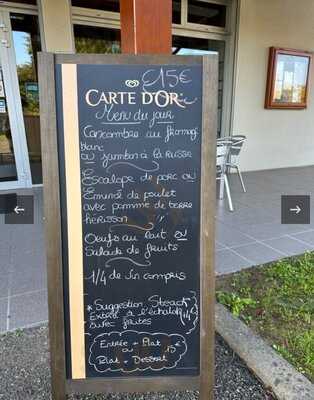 15€
CARTE D'OR
Menu du jour
Concombre au fromage
blanc
ou jambon à la russe
Escalope de porc ou
Emincé de poulet
avec pomme de terre
hérisson
Oeufs au lait ou
Salade de fruits
1/4 de vin compris
* Suggestion Steack
Extra à l'échalote
avec frites +4
Entrée + Plat
ou 13€
Plat + Dessert